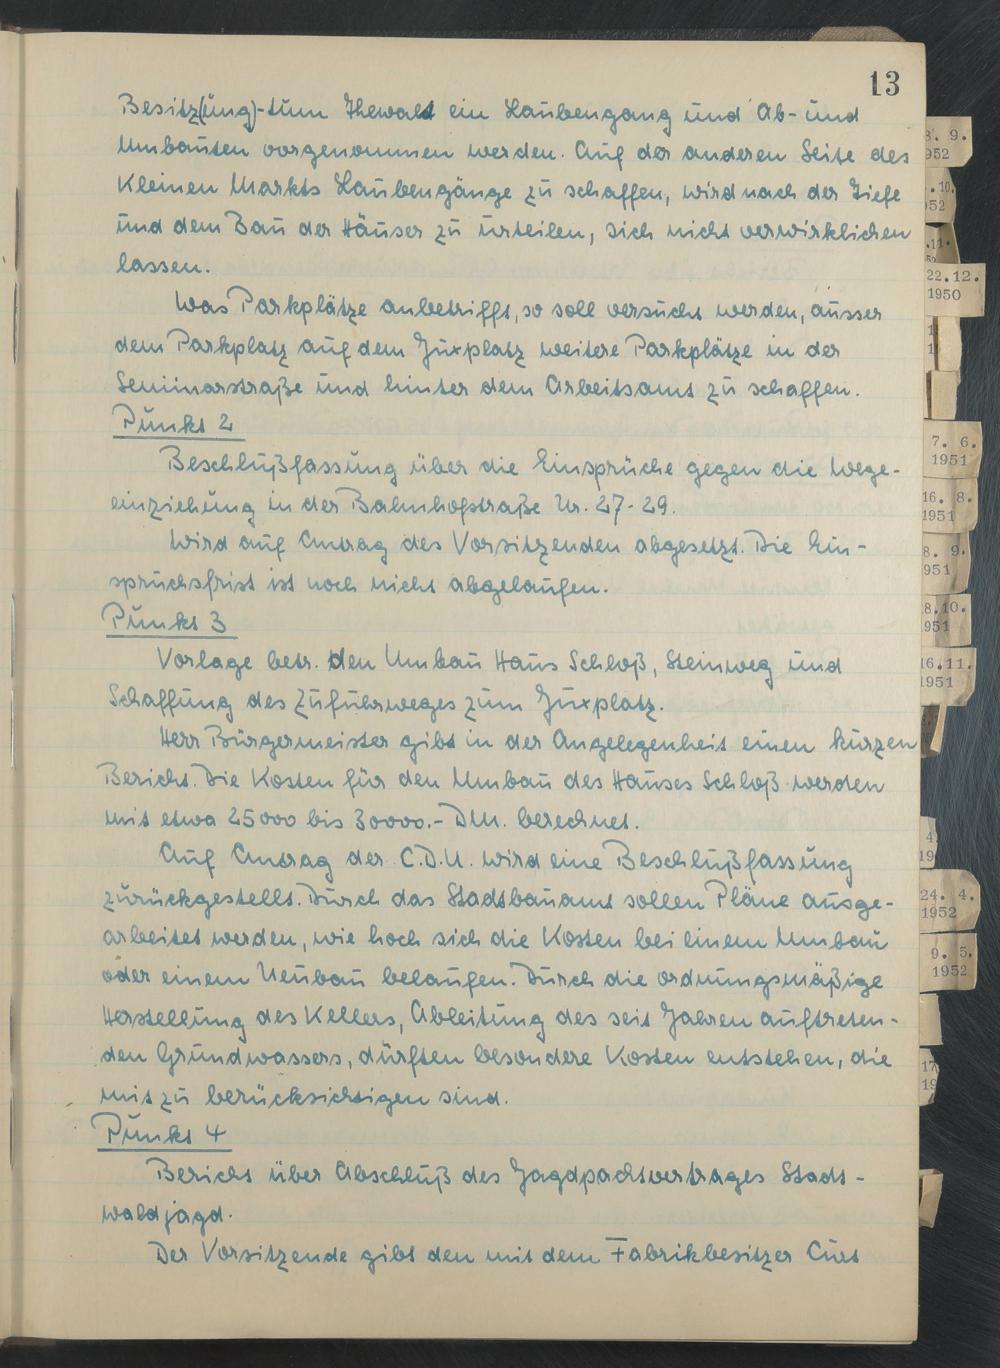 13
Besitz(ung)-tum Thewalt ein Laubengang und Ab- und
Umbauten vorgenommen werden. Auf der anderen Seite des
Kleinen Markts Laubengänge zu schaffen, wird nach der Tiefe
und dem Bau der Häuser zu urteilen, sich nicht verwirklichen
lassen.
Was Parkplätze anbetrifft, so soll versucht werden, ausser
dem Parkplatz auf dem Juxplatz weitere Parkplätze in der
Seminarstraße und hinter dem Arbeitsamt zu schaffen.
Punkt 2
Beschlußfassung über die Einsprüche gegen die Wege-
einziehung in der Bahnhofstraße Nr. 27-29.
Wird auf Antrag des Vorsitzenden abgesetzt. Die Ein-
spruchsfrist ist noch nicht abgelaufen.
Punkt 3
Vorlage betr. den Umbau Haus Schloß, Steinweg und
Schaffung des Zufuhrweges zum Juxplatz.
Herr Bürgermeister gibt in der Angelegenheit einen kurzen
Bericht. Die Kosten für den Umbau des Hauses Schloß werden
mit etwa 25000 bis 30000.- DM. berechnet.
Auf Antrag der C.D.U. wird eine Beschlußfassung
zurückgestellt. Durch das Stadtbauamt sollen Pläne ausge-
arbeitet werden, wie hoch sich die Kosten bei einem Umbau
oder einem Neubau belaufen. Durch die ordnungsmäßige
Herstellung des Kellers, Ableitung des seit Jahren auftreten-
den Grundwassers, dürften besondere Kosten entstehen, die
mit zu berücksichtigen sind.
Punkt 4
Bericht über Abschluß des Jagdpachtvertrages Stadt-
waldjagd.
Der Vorsitzende gibt den mit dem Fabrikbesitzer Curt
8. 9.
952
.10.
52
.11.
22.12.
1950
7. 6.
1951
16. 8.
1951
8. 9.
951
8.10.
951
16.11.
1951
4.
19
24. 4.
1952
9. 5.
1952
17
19